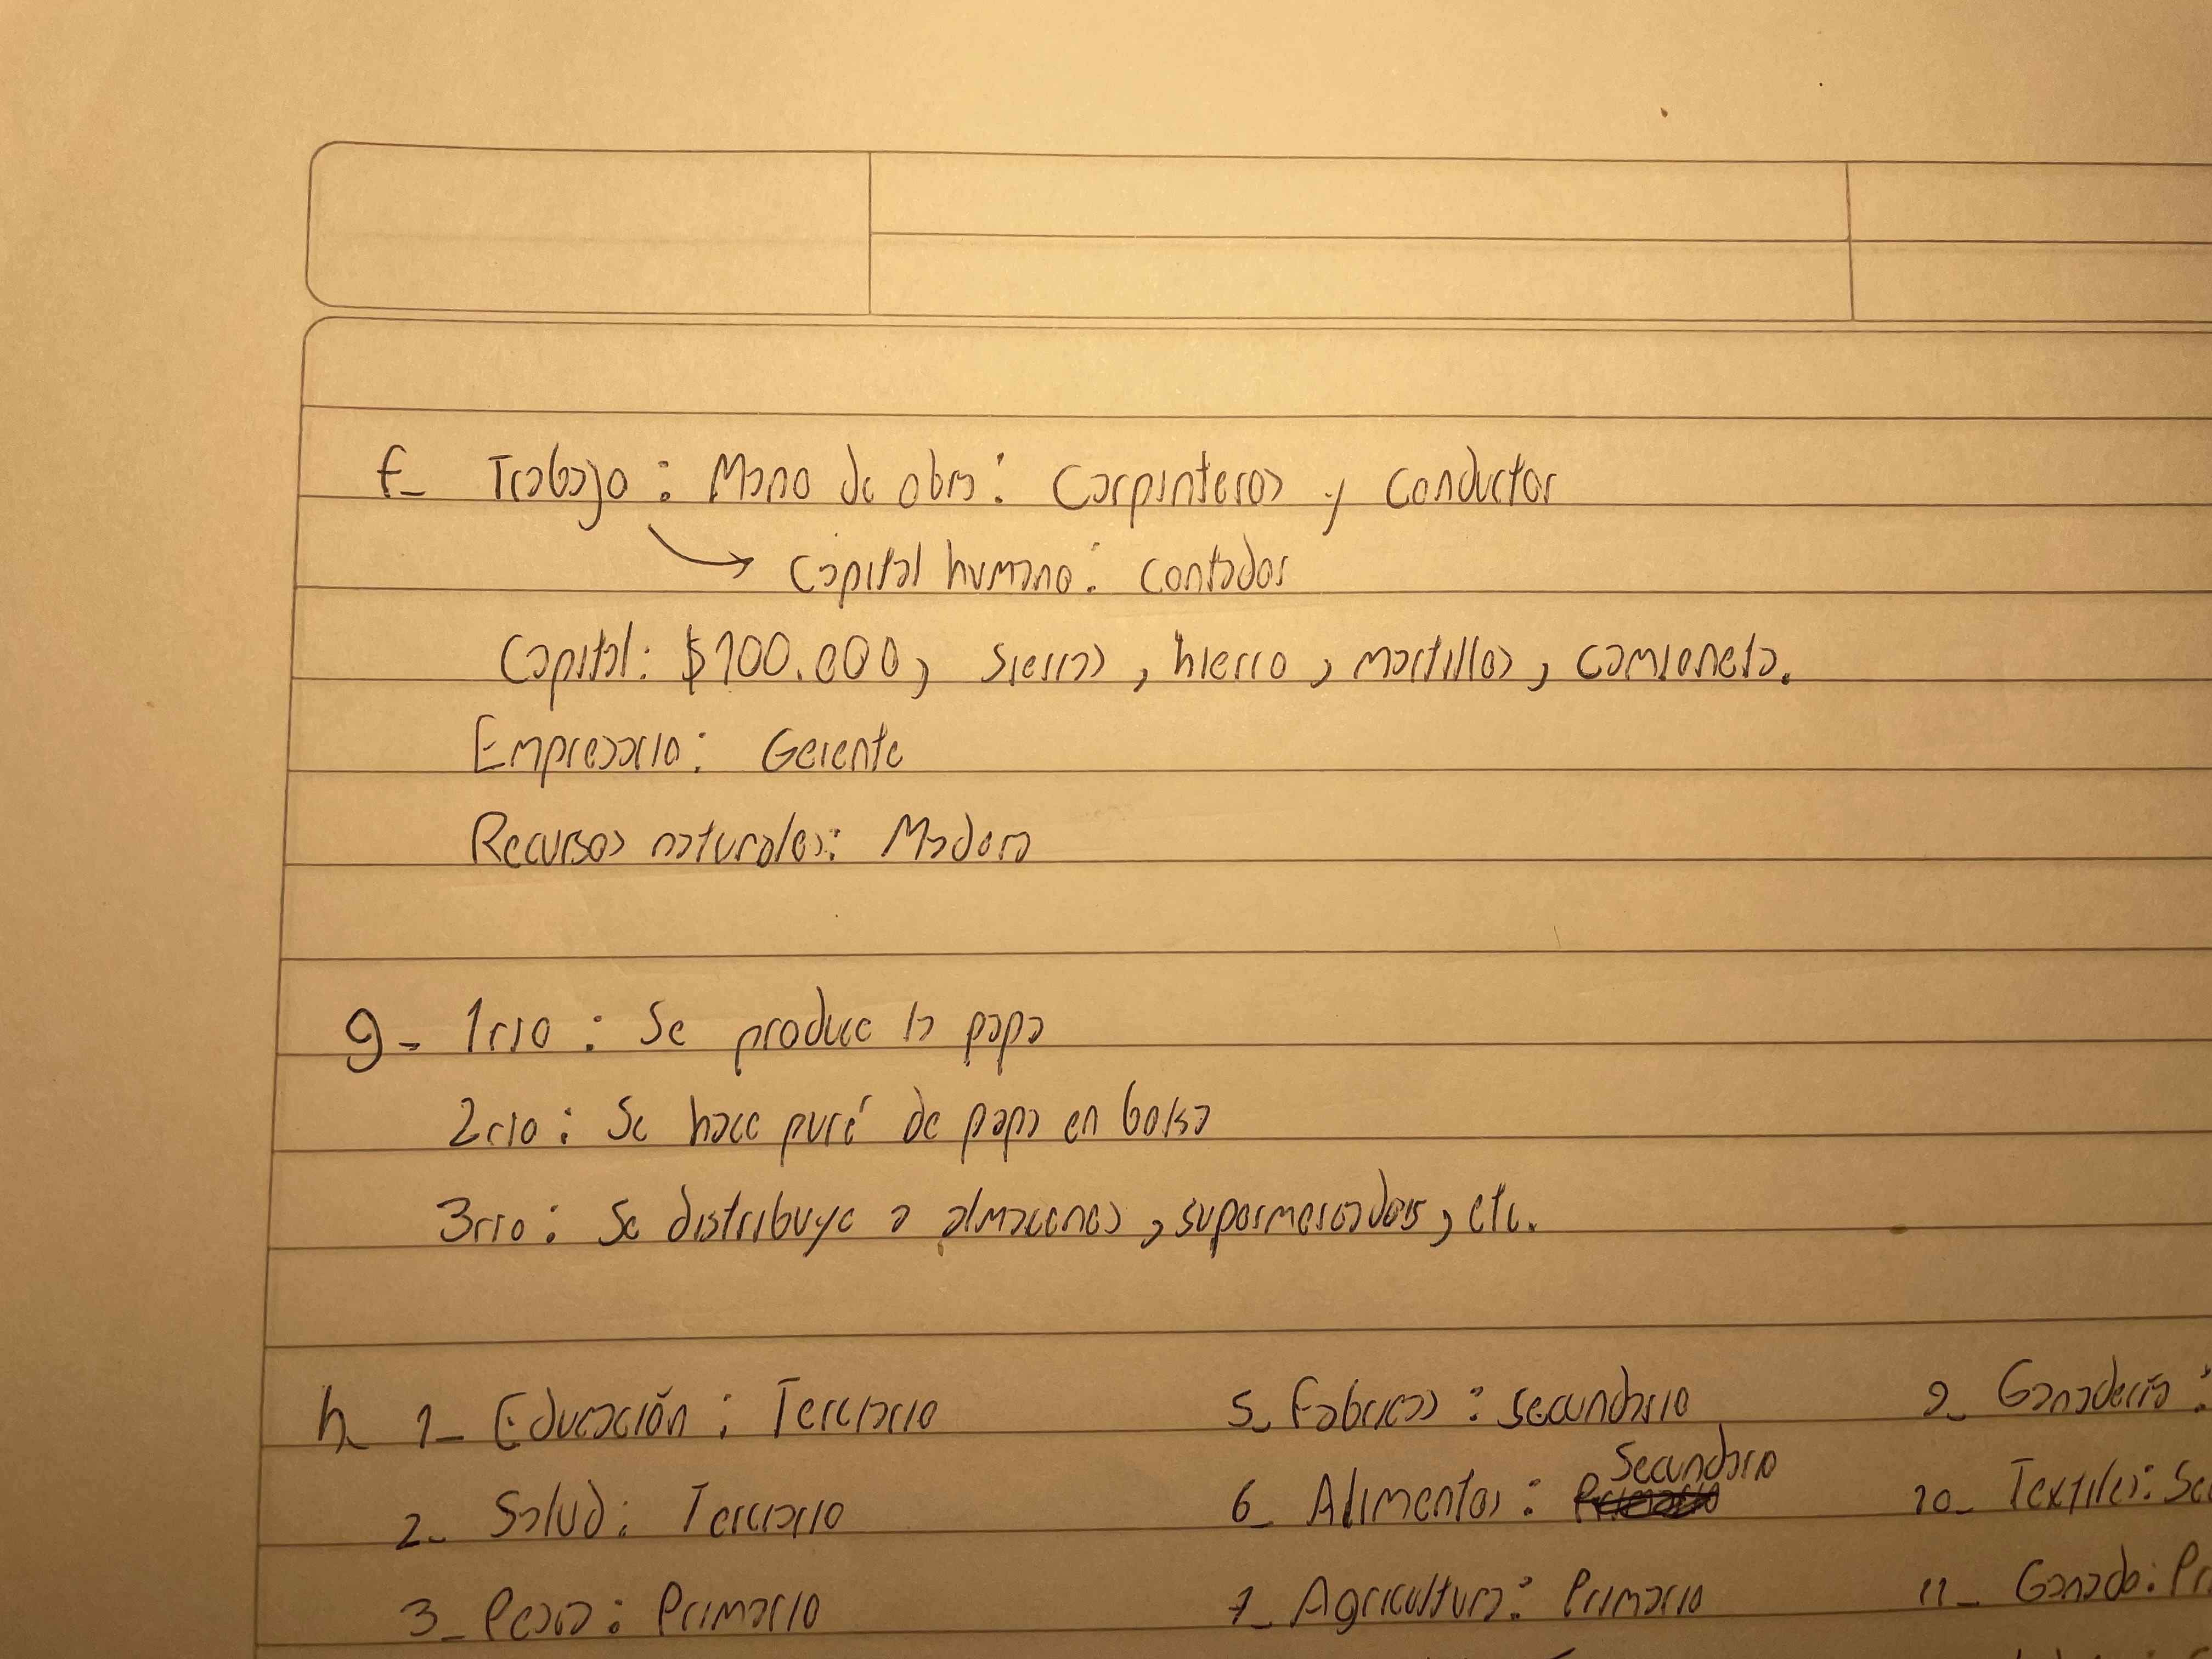 f- Trabajo : Mano de obra : Carpinteros y conductor
→ Capital humano : contador
Capital: $100.000, sierras, hierro, martillos, camioneta.
Empresario: Gerente
Recursos naturales: Madera
g- 1rio : Se produce la papa
2rio : Se hace puré de papa en bolsa
3rio : Se distribuye a almacenes, supermercados, etc.
h- 1- Educación : Terciario 5- Fabricas : secundario 9- Ganadería :
2- Salud : Terciario 6- Alimentos : Secundario 10- Textiles:
3- Pesca : Primario 7- Agricultura : Primario 11- Ganado: